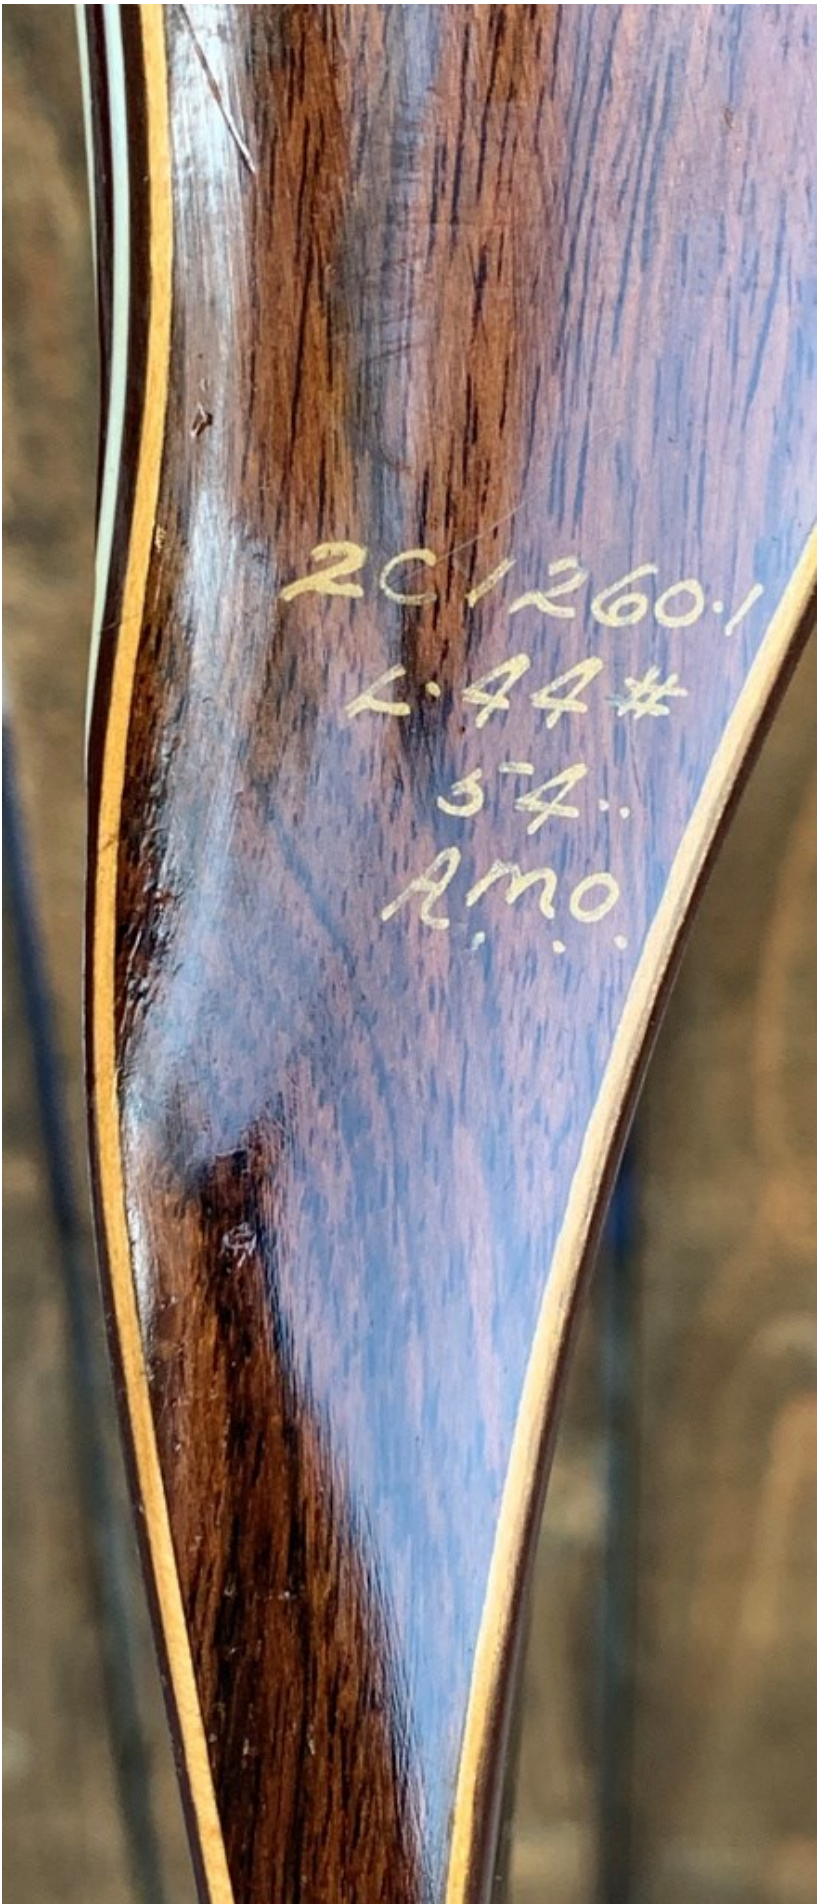 2C1260.1
L.44#
54..
A.M.O.